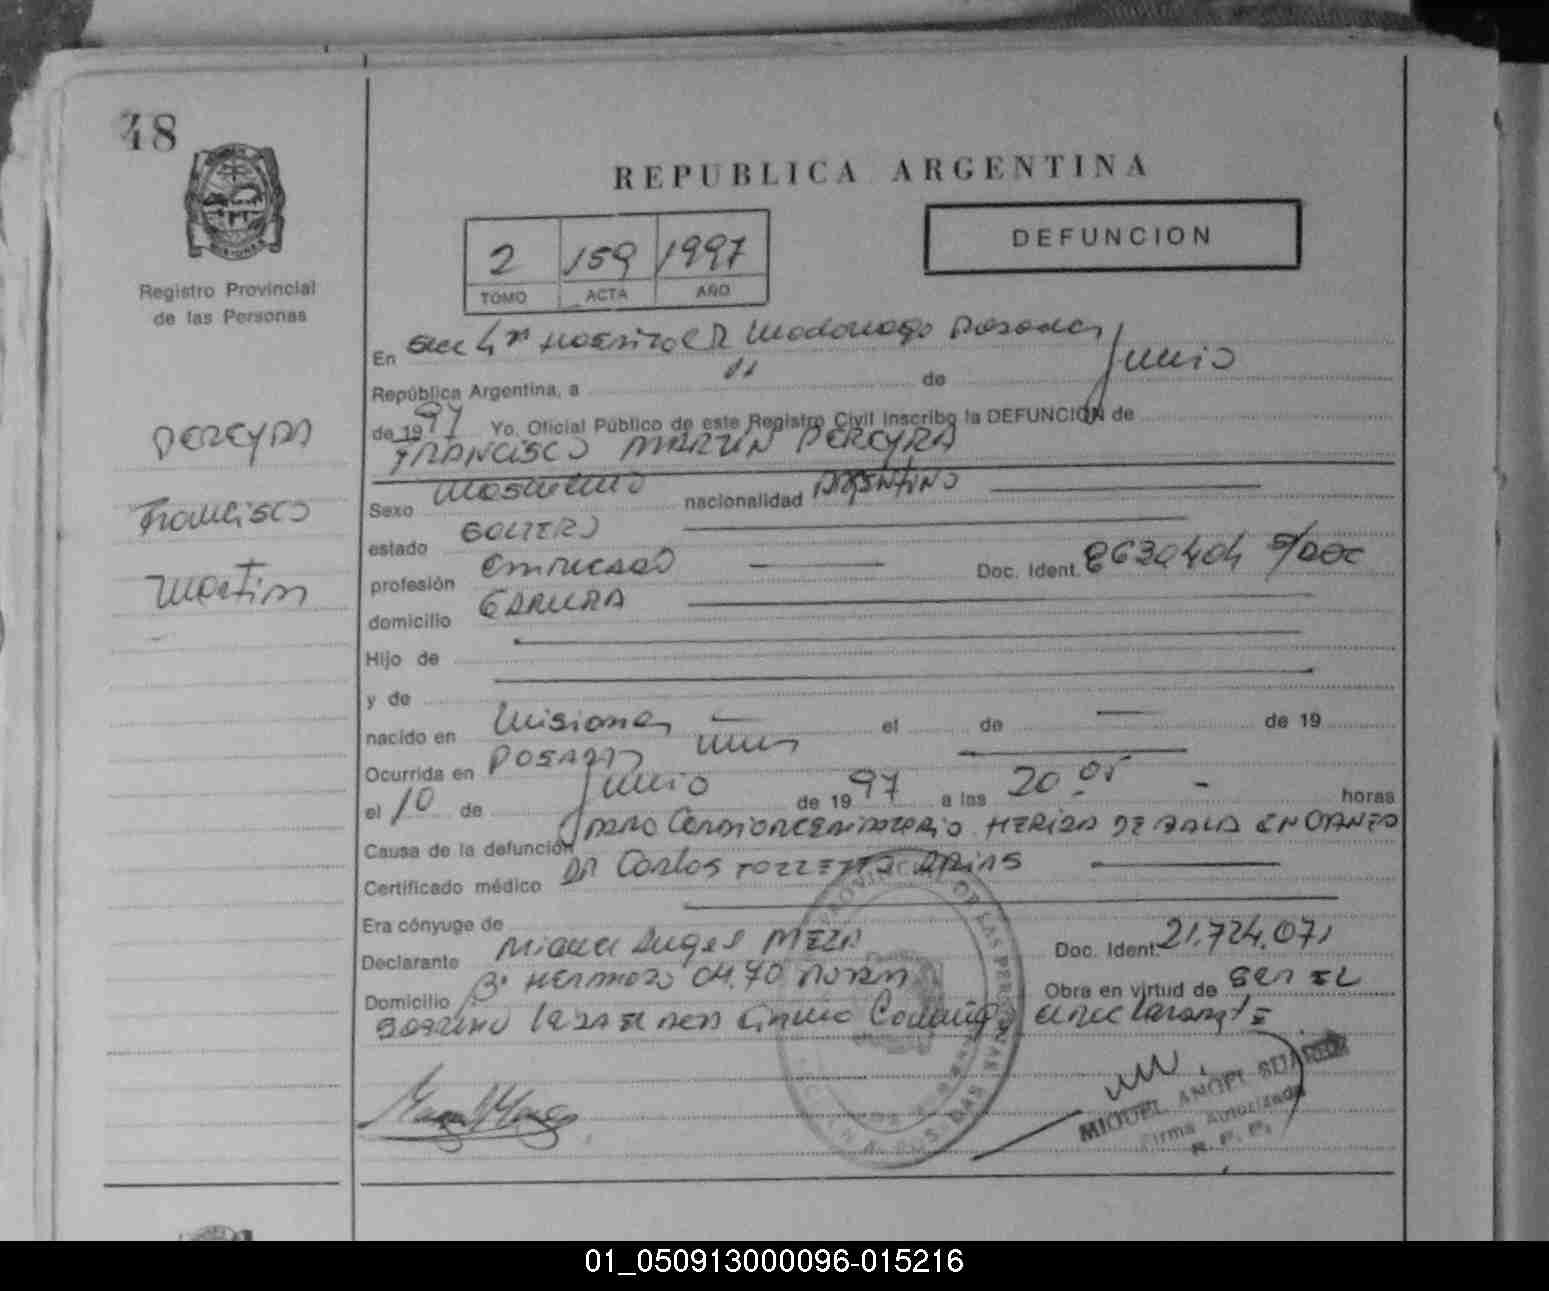 48
REPUBLICA ARGENTINA
2 159 1997
TOMO ACTA AÑO
DEFUNCION
Registro Provincial
de las Personas
PEREYRA
Francisco
Martin
En Secc 4ª Hospital R Madariaga Posadas
República Argentina, a 11 de Junio
de 1997 Yo, Oficial Público de este Registro Civil inscribo la DEFUNCION de
FRANCISCO MARTIN PEREYRA
Sexo Masculino nacionalidad ARGENTINO
estado SOLTERO
profesión EMPLEADO Doc. Ident. 8630404 S/DOC
domicilio GARUPA
Hijo de
y de
nacido en Misiones el de de 19
Ocurrida en POSADAS
el 10 de Junio de 1997 a las 20.05 horas
Causa de la defunción PARO Cardiorespiratorio HERIDA DE BALA EN CRANEO
Certificado médico DR Carlos ARIAS
Era cónyuge de
Declarante Miguel Angel MEZA Doc. Ident. 21.724.071
Domicilio Bº HERMOSO CH. 70 Obra en virtud de SER EL
SOBRINO firmó Conmigo el declarante
MIGUEL ANGEL SUAREZ
Firma Autorizada
R. P. P.
01_050913000096-015216